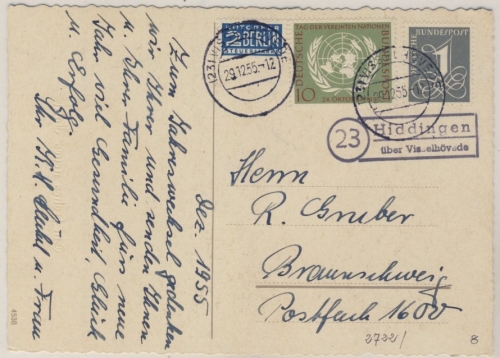 Dez. 1955
Zum Jahreswechsel gedenken
wir Ihrer und senden Ihnen
u. Ihrer Familie fürs neue
Jahr viel Gesundheit, Glück
u. Erfolg.
Ihr u. Frau
4538
NOTOPFER
2 BERLIN
STEUERMARKE
29.12.55.-12
TAG DER VEREINTEN NATIONEN
DEUTSCHE BUNDESPOST
10
24. OKTOBER
BUNDESPOST
1
29.12.55.-12
23
Hiddingen
über Visselhövede
Herrn
R. Gruber
Braunschweig
Postfach 1600
2732/
8